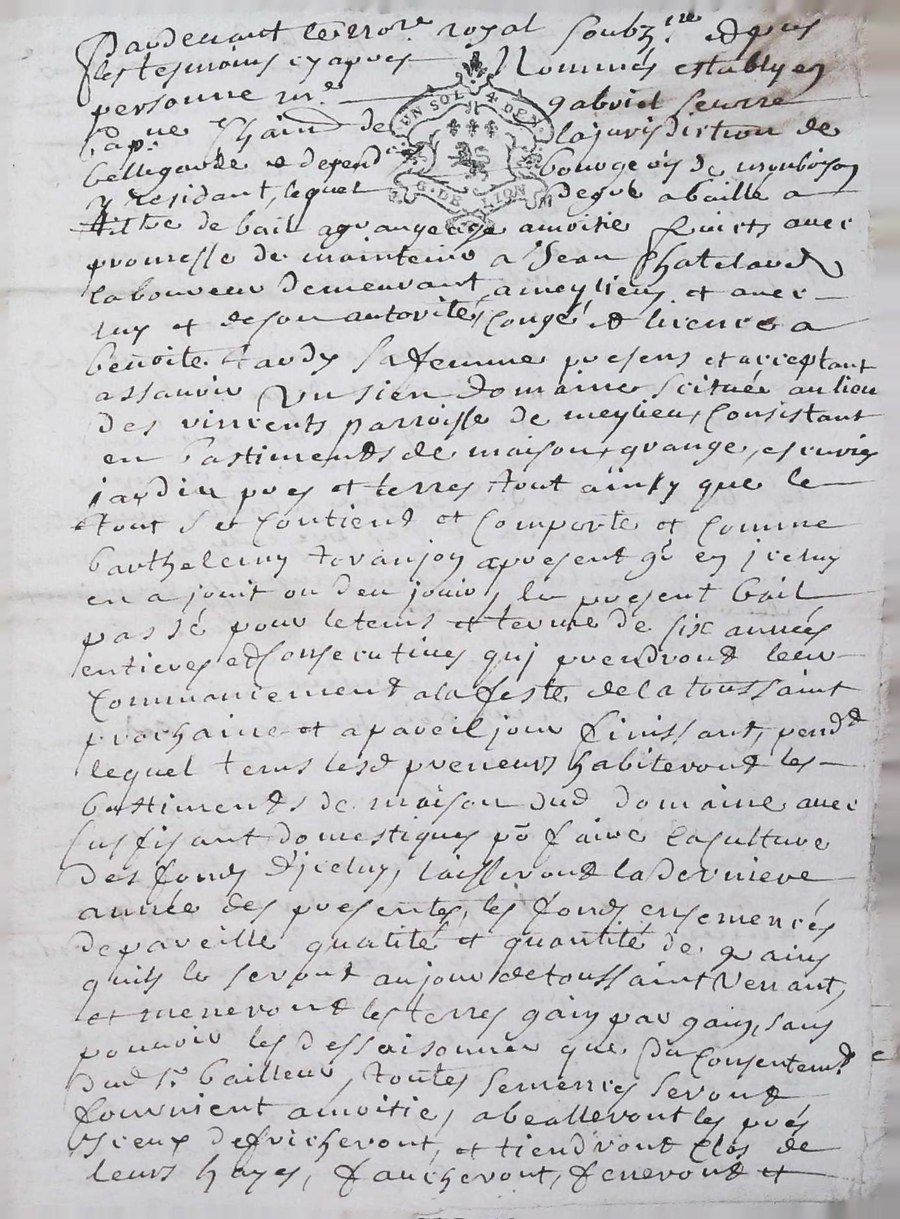 Pardevant le no.re royal soubz.né et pres
les tesmoins cy apres Nommés estably en
personne m.e gabriel seurre
cap.ne Chain de la jurisdiction de
bellegarde et depend.ce bourgeois de monbrison
y residant, lequel de gré a baille a
tiltre de bail a grangeage a moitie fruicts avec
promesse de maintenir a Jean Chatelard
laboureur demeurant a meylieu, et avec
luy et de son autorité, congé, et licence a
benoite tardy sa femme presens et acceptant
assavoir Un sien domaine scitué au lieu
des vincents parroisse de meylieu, Consistant
en bastiments de maison, grange, escuries
jardin pres et terres tout ainsy que le
tout se Contient et Comporte et Comme
barthelemy toranjon apresent gr. en jceluy
en a jouit ou deu jouir, le present bail
passé pour le tems et terme de six années
entieres et Consecutives qui prendront leur
Commancement a la feste de la toussaint
prochaine et a pareil jour finissant, pend.t
lequel tems lesd preneurs habiteront les
bastiments de maison dud domaine avec
suffisant domestiques po faire la Culture
des fonds d'jceluy, laisseront la derniere
année des presentes, les fonds ensemencés
de pareille qualité et quantité de grains
quils le seront au jour de toussaint Venant,
et meneront les terres gain par gain, sans
pouvoir les dessaisonner que du Consentem.t
dud s.r bailleur, toutes semences seront
fournient a moitie, abealleront les prés
Iceux defricheront, et tiendront Clos de
leurs hayes, faucheront, feneront et
EN SOL 4 DEN.
G. DE LION